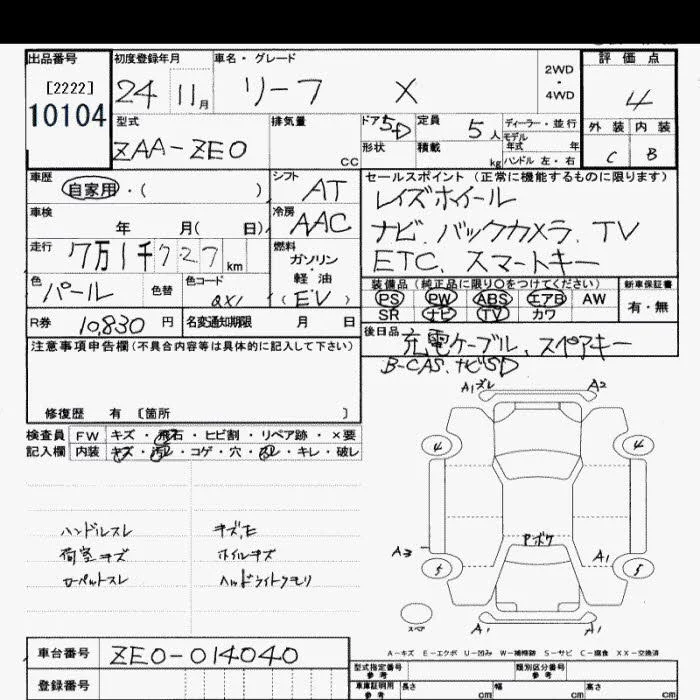 出品番号 初度登録年月 車名・グレード 評価点
[2222] 24 11月 リーフ X 2WD・4WD 4
10104
型式 排気量 ドア 5D 定員 5人 ディーラー・並行 外装 内装
モデル年式 年
ZAA-ZE0 cc 形状 積載 kg ハンドル 左・右 C B
車歴 シフト セールスポイント (正常に機能するものに限ります)
自家用・( ) AT レイズホイール
車検 冷房 ナビ、バックカメラ、TV
年 月( 日) AAC ETC、スマートキー
走行 7万1千727km 燃料 ガソリン・軽油 (EV)
装備品(純正品に限り○をつけてください) 新車保証書
色 パール 色替 色コード QX1
PS PW ABS エアB AW 有・無
SR ナビ TV カワ
R券 10,830円 名変通知期限 月 日
後日品 充電ケーブル、スペアキー
B-CAS、ナビSD
注意事項申告欄(不具合内容等は具体的に記入して下さい)
修復歴 有 [箇所 ]
A1ズレ A2
検査員 FW キズ・飛石・ヒビ割・リペア跡・×要
記入欄 内装 キズ・汚レ・コゲ・穴・・キレ・破レ
4 4
ハンドルスレ
荷室キズ ホイルキズ
ヘッドライトクモリ
Pボケ
A3 A1
5 5
スペア A1 A1
A-キズ E-エクボ U-凹み W-補修跡 S-サビ C-腐食 XX-交換済
車台番号 ZE0-014040
型式指定番号 参考 類別区分番号 参考
登録番号
車庫証明用 参考 長さ cm 幅 cm 高さ cm